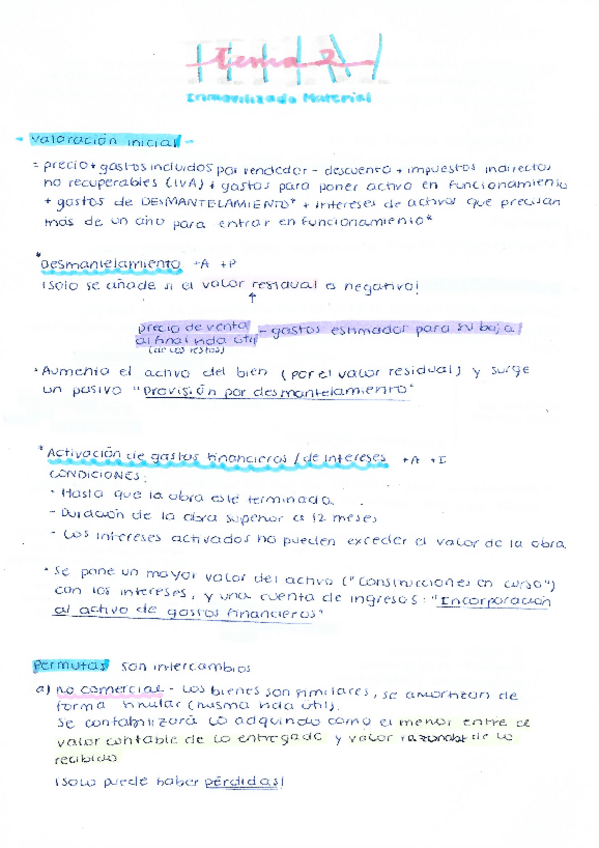 Tema 2
Inmovilizado Material
- Valoración inicial -
= precio + gastos incluidos por vendedor - descuento + impuestos indirectos
no recuperables (IVA) + gastos para poner activo en funcionamiento
+ gastos de DESMANTELAMIENTO* + intereses de activos que precisan
más de un año para entrar en funcionamiento*
*Desmantelamiento +A +P
¡solo se añade si el valor residual es negativo!
↑
precio de venta - gastos estimados para su baja
al final vida útil
(de los restos)
· Aumenta el activo del bien (por el valor residual) y surge
un pasivo "provisión por desmantelamiento"
*Activación de gastos financieros / de intereses +A +I
CONDICIONES:
- Hasta que la obra esté terminada.
- Duración de la obra superior a 12 meses
- Los intereses activados no pueden exceder el valor de la obra.
· Se pone un mayor valor del activo ("construcciones en curso")
con los intereses, y una cuenta de ingresos: "Incorporación
al activo de gastos financieros"
Permutas son intercambios
a) no comercial - Los bienes son similares, se amortizan de
forma similar (misma vida útil).
Se contabilizará lo adquirido como el menor entre el
valor contable de lo entregado y valor razonable de lo
recibido
¡solo puede haber pérdidas!